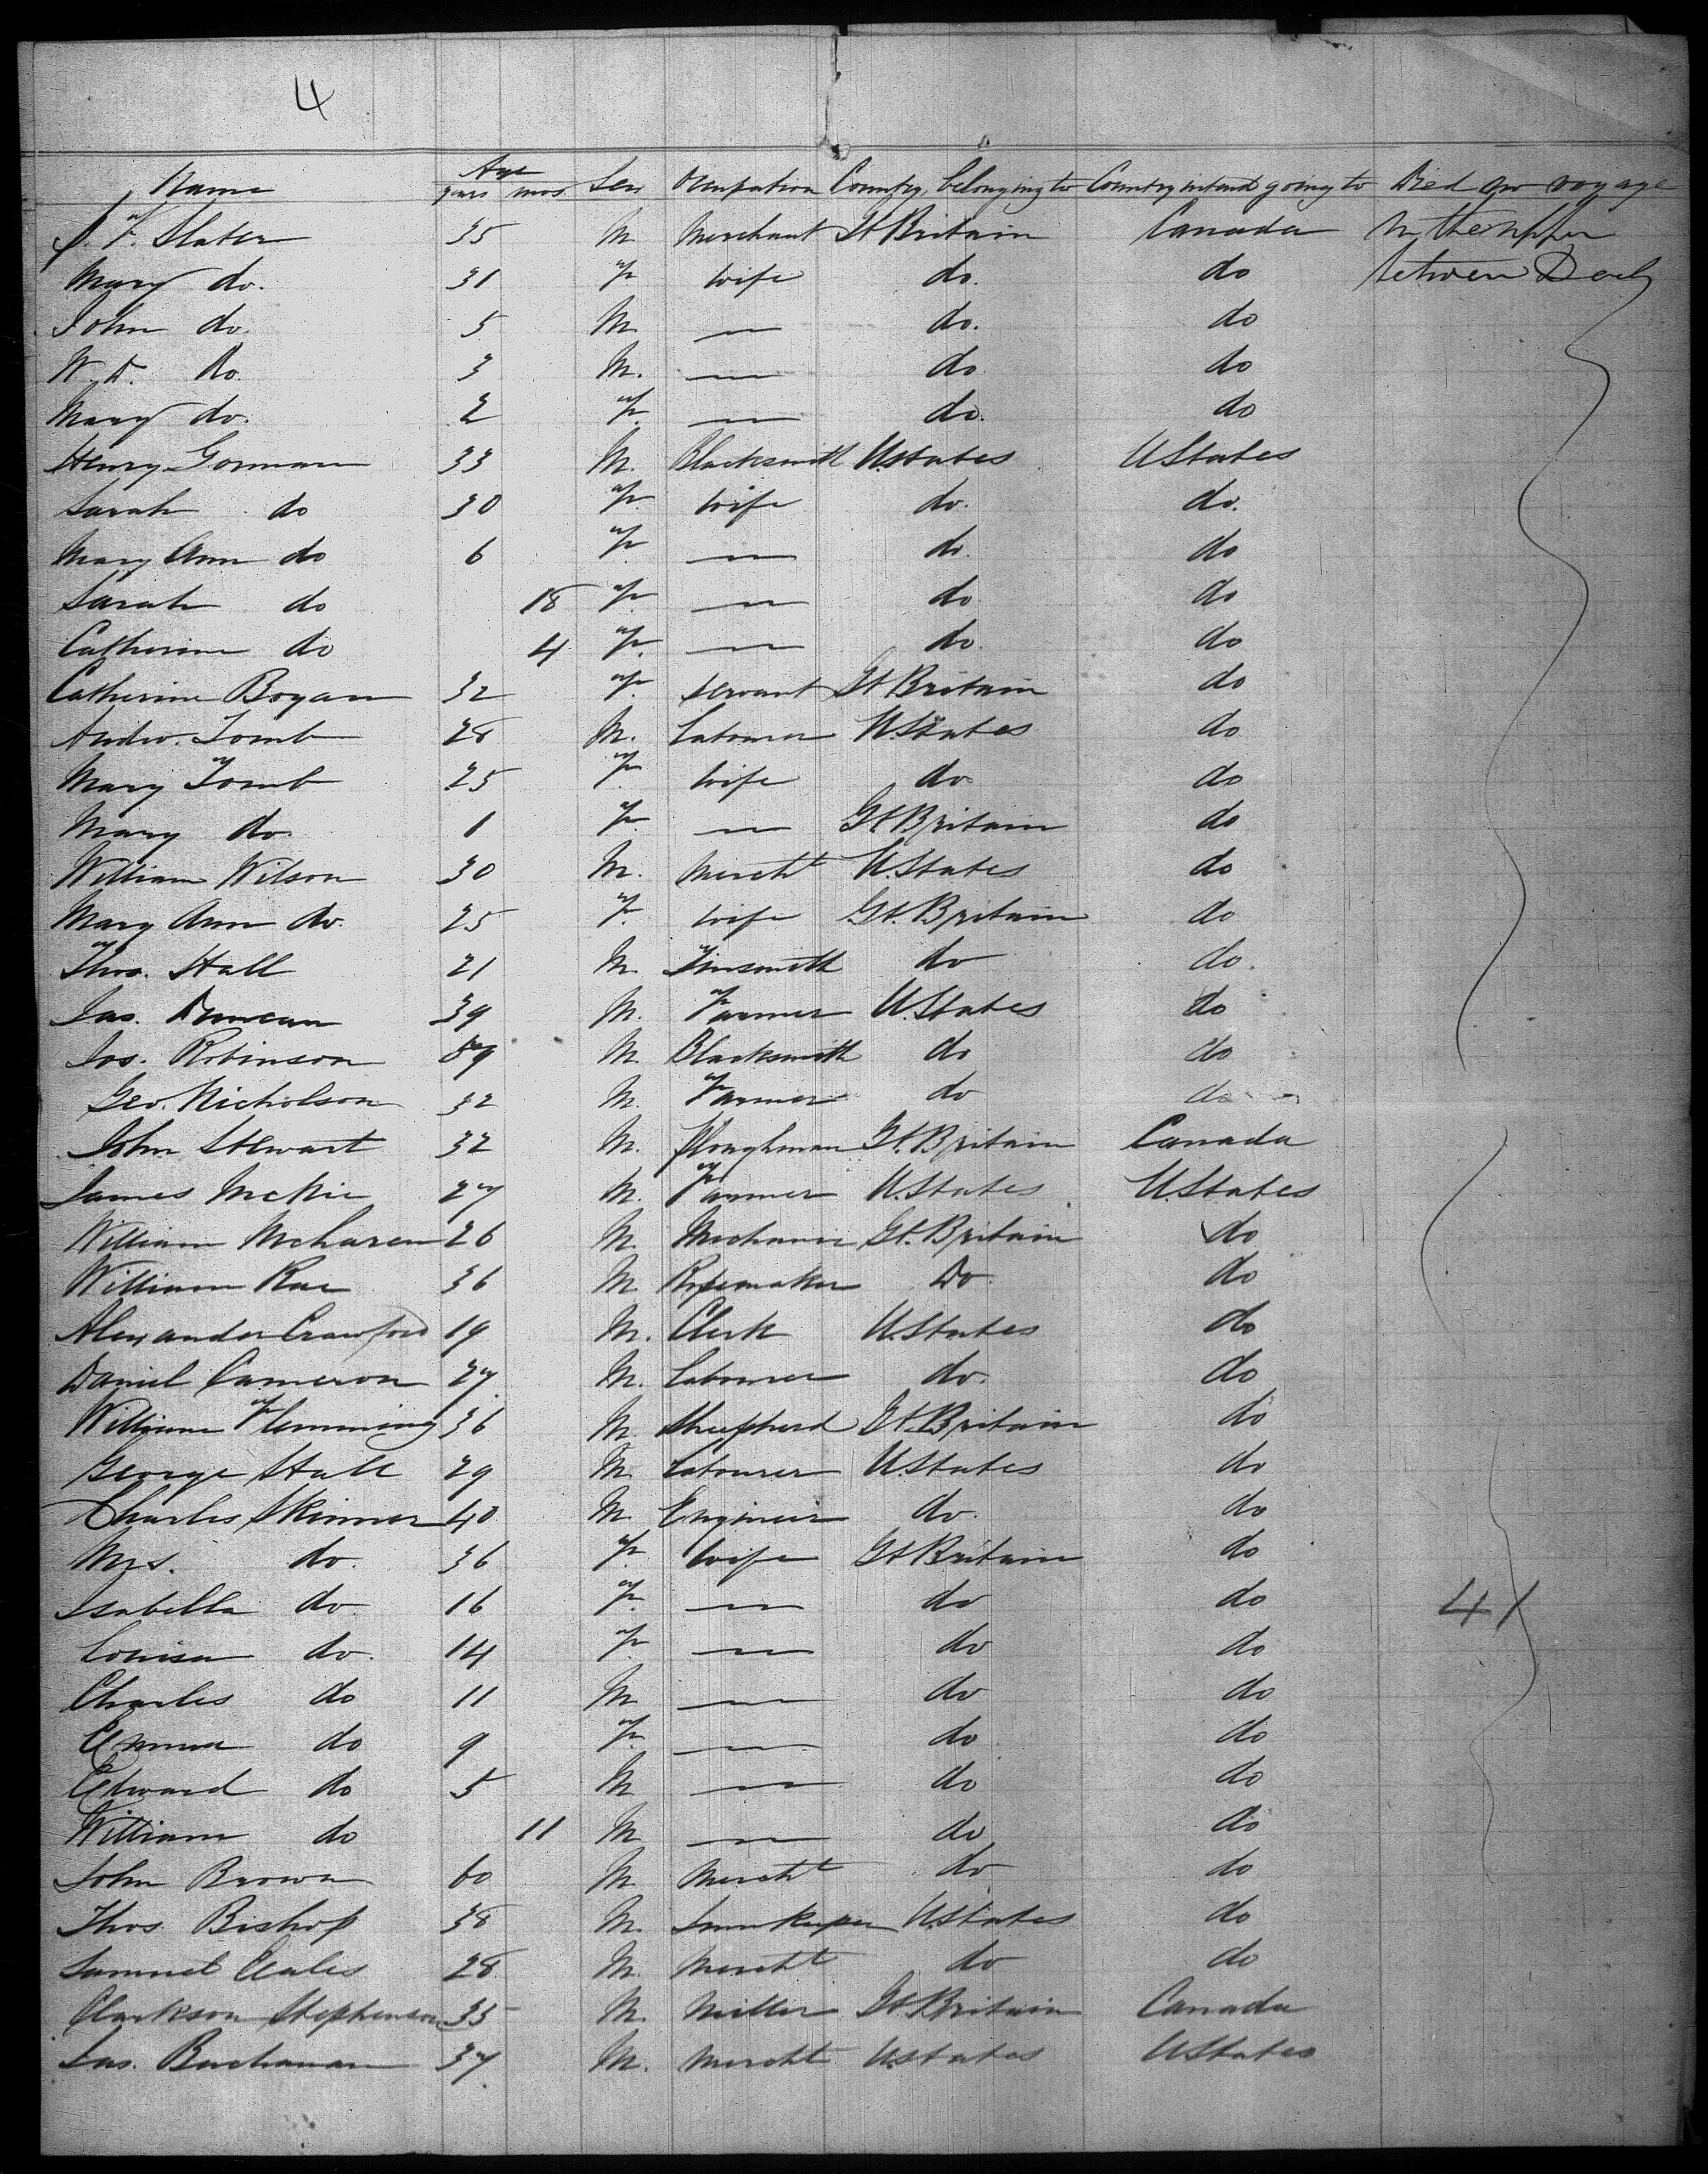 4
Name Age years mos. Sex Occupation Country belonging to Country intend going to Died on voyage
J. F. Slater 35 M Merchant Gt Britain Canada In the upper
Mary do. 31 F wife do. do between Deck
John do. 5 M. — do. do
W. D. Do. 3 M. — do do
Mary do. 2 F. — do. do
Henry Gorman 33 M. Blacksmith U.States U States
Sarah do 30 F. wife do. do.
Mary Ann do 6 F. — do. do
Sarah do 18 F. — do do
Catherine do 4 F. — do. do
Catherine Bogan 32 F. servant Gt Britain do
Andw. Tomb 28 M. Labourer U.States do
Mary Tomb 25 F. wife do. do
Mary do. 1 F. — Gt Britain do
William Wilson 30 M. Mercht U.States do
Mary Ann do. 25 F. wife Gt. Britain do
Thos. Hall 21 M. Tinsmith do do.
Jas. Duncan 39 M. Farmer U.States do
Jos. Robinson M. Blacksmith do do
Geo. Nicholson 32 M. Farmer do do
John Stewart 32 M. Ploughman Gt. Britain Canada
James McKie 27 M. Farmer U.States U States
William McLaren 26 M. Mechanic Gt. Britain do
William Rae 36 M Ropemaker Do. do
Alexander Crawford 19 M. Clerk U.States do
Daniel Cameron 27 M. Labourer do. do
William Flemming 36 M. Shepherd Gt. Britain do
George Hall 29 M. Labourer U.States do
Charles Skinner 40 M. Engineer do. do
Mrs. do. 36 F. wife Gt Britain do
Isabella do. 16 F. — do do
Louisa do. 14 F. — do do
Charles do 11 M — do do
Emma do 9 F. — do do
Edward do 5 M — do do
William do 11 M — do do
John Brown 60 M Mercht do do
Thos. Bishop 38 M. Innkeeper U.States do
Samuel Eales 28 M. Mercht do do
Clarkson Stephenson 35 M. Miller Gt Britain Canada
Jas. Buchanan 37 M. Mercht U.States U States
41